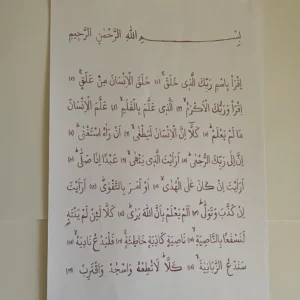 بِسْمِ اللهِ الرَّحْمٰنِ الرَّحِيْمِ
اِقْرَاْ بِاسْمِ رَبِّكَ الَّذِى خَلَقَ ﴿١﴾ خَلَقَ الْاِنْسَانَ مِنْ عَلَقٍ ﴿٢﴾
اِقْرَاْ وَرَبُّكَ الْاَكْرَمُ ﴿٣﴾ اَلَّذِى عَلَّمَ بِالْقَلَمِ ﴿٤﴾ عَلَّمَ الْاِنْسَانَ
مَا لَمْ يَعْلَمْ ﴿٥﴾ كَلَّا اِنَّ الْاِنْسَانَ لَيَطْغٰى ﴿٦﴾ اَنْ رَاٰهُ اسْتَغْنٰى ﴿٧﴾
اِنَّ اِلٰى رَبِّكَ الرُّجْعٰى ﴿٨﴾ اَرَاَيْتَ الَّذِى يَنْهٰى ﴿٩﴾ عَبْدًا اِذَا صَلّٰى ﴿١٠﴾
اَرَاَيْتَ اِنْ كَانَ عَلَى الْهُدٰى ﴿١١﴾ اَوْ اَمَرَ بِالتَّقْوٰى ﴿١٢﴾ اَرَاَيْتَ
اِنْ كَذَّبَ وَتَوَلّٰى ﴿١٣﴾ اَلَمْ يَعْلَمْ بِاَنَّ اللهَ يَرٰى ﴿١٤﴾ كَلَّا لَئِنْ لَمْ يَنْتَهِ
لَنَسْفَعًا بِالنَّاصِيَةِ ﴿١٥﴾ نَاصِيَةٍ كَاذِبَةٍ خَاطِئَةٍ ﴿١٦﴾ فَلْيَدْعُ نَادِيَهُ ﴿١٧﴾
سَنَدْعُ الزَّبَانِيَةَ ﴿١٨﴾ كَلَّا لَا تُطِعْهُ وَاسْجُدْ وَاقْتَرِبْ ﴿١٩﴾